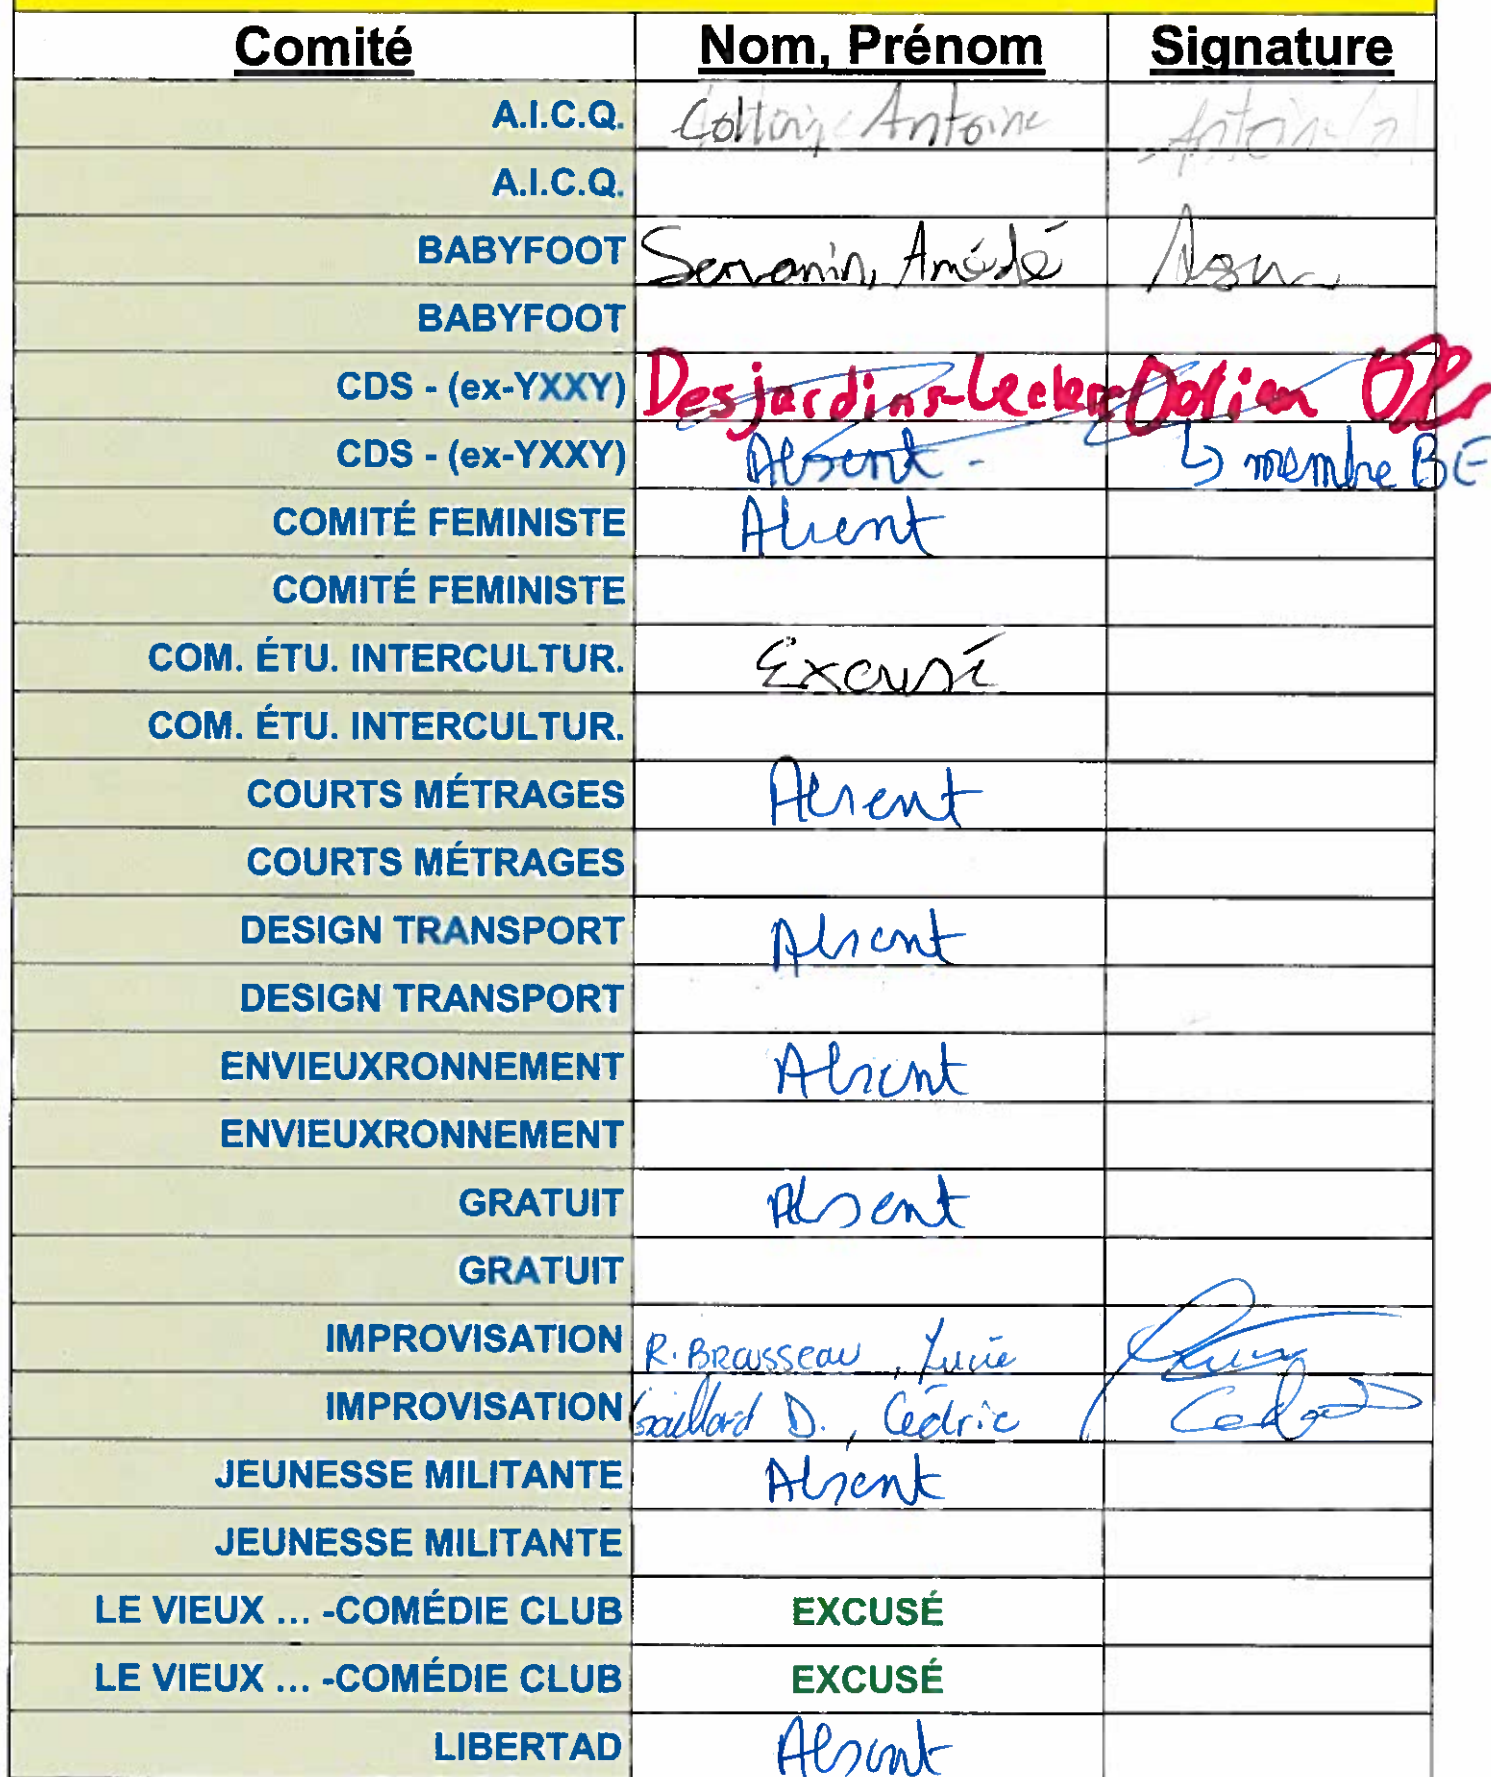 Comité Nom, Prénom Signature
A.I.C.Q. Antoine
A.I.C.Q.
BABYFOOT Amédé
BABYFOOT
CDS - (ex-YXXY) Desjardins-Lecler
CDS - (ex-YXXY) Absent - ↳ membre BE
COMITÉ FEMINISTE Absent
COMITÉ FEMINISTE
COM. ÉTU. INTERCULTUR. Excusé
COM. ÉTU. INTERCULTUR.
COURTS MÉTRAGES Absent
COURTS MÉTRAGES
DESIGN TRANSPORT Absent
DESIGN TRANSPORT
ENVIEUXRONNEMENT Absent
ENVIEUXRONNEMENT
GRATUIT Absent
GRATUIT
IMPROVISATION R. BROUSSEAU, Lucie
IMPROVISATION Gaillard D., Cédric
JEUNESSE MILITANTE Absent
JEUNESSE MILITANTE
LE VIEUX ... -COMÉDIE CLUB EXCUSÉ
LE VIEUX ... -COMÉDIE CLUB EXCUSÉ
LIBERTAD Absent